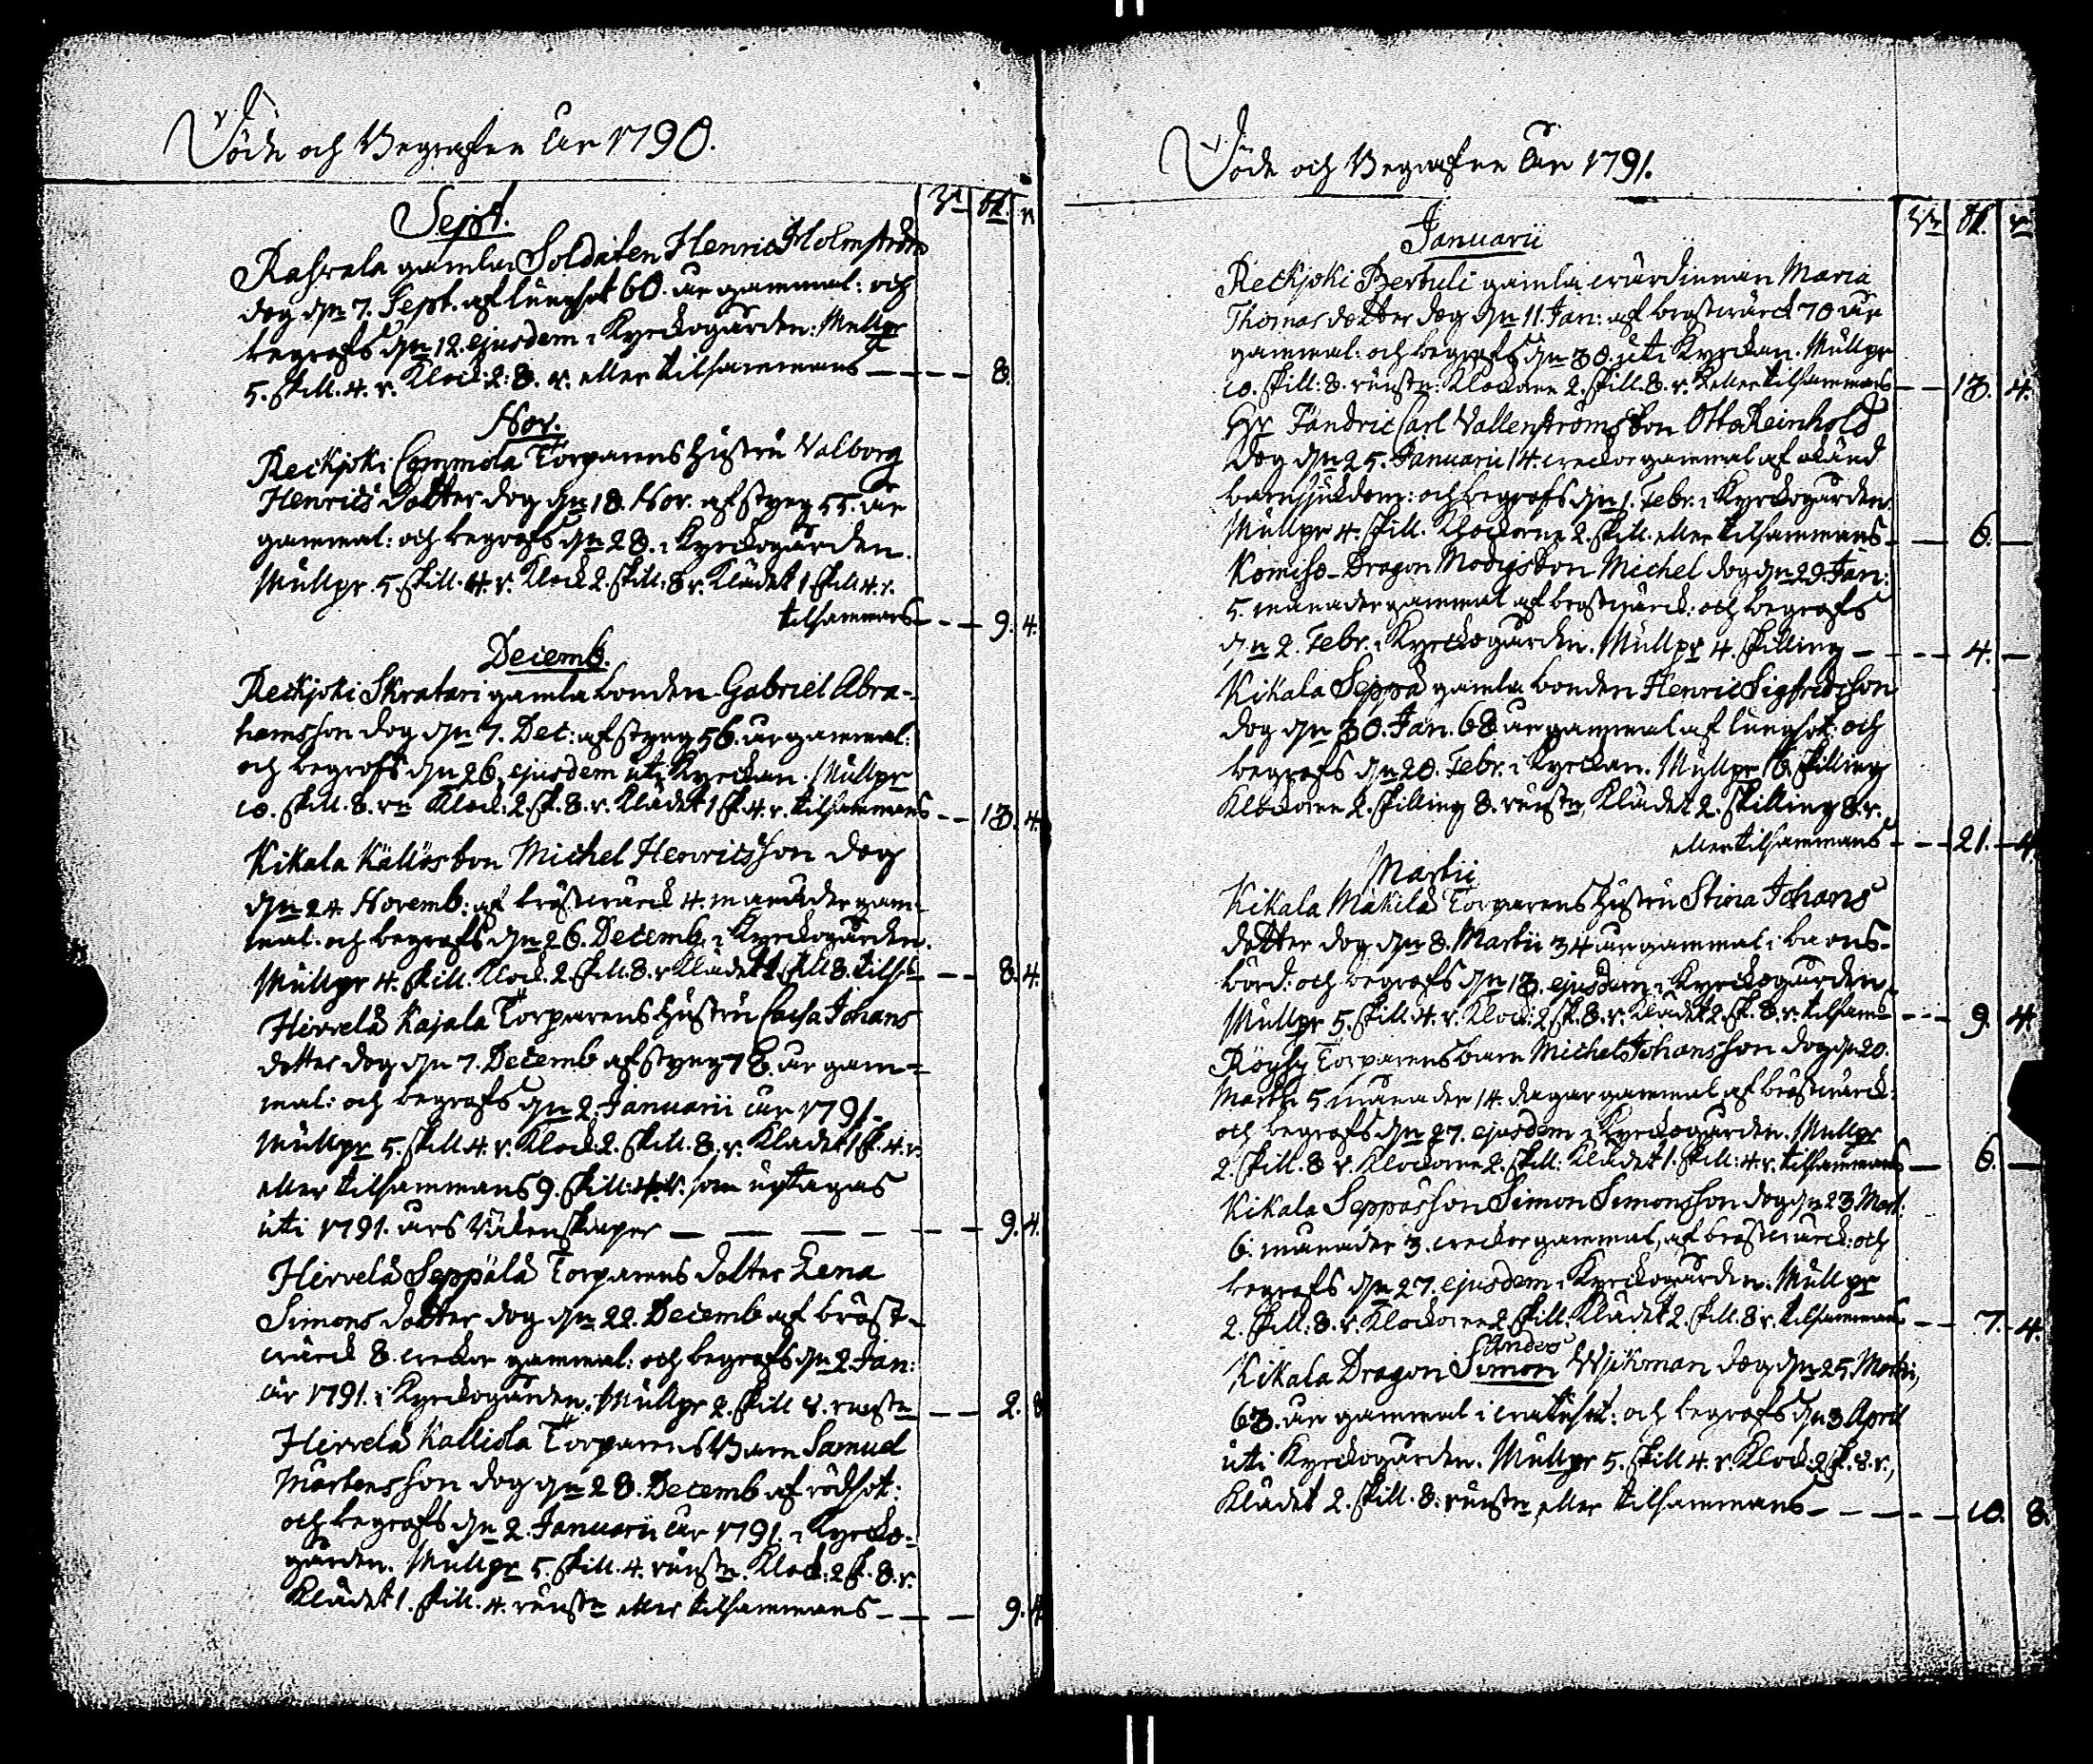 Döde och Begrafne År 1790.
Rd sk. r
Sept.
Rahvala gamla Soldaten Henric Holmström
dog d:n 7. Sept. af lungsot 60. år gammal: och
begrofs d:n 12. ejusdem i Kyrckogården: Mullpr
5. skill. 4. r. Klock: 2: 8. r. eller tilsammans — — — 8.
Nov.
Reckjoki Torparens Hustru Valborg
Henrics dotter dog d:n 18. Nov. af styng 55. år
gammal: och begrofs d:n 28. i Kyrckogården.
Mullpr. 5. skill. 4. r. Klock 2. skill. 8 r. Klädet 1 skill 4. r.
tilsammans — — — 9. 4.
Decemb.
Reckjoki Skratari gamla bonden Gabriel Abra-
hamsson dog d:n 7. Dec: af styng 56. år gammal:
och begrofs d:n 26. ejusdem uti Kyrckan. Mullpr
10. skill. 8. rn Klock: 2 sk. 8. r. Klädet 1 sk. 4. r. tilsammans — — 13. 4.
Kikala son Michel Henricsson dog
d:n 24. Novemb: af bröstwärck 4. månader gam-
mal. och begrofs d:n 26. Decemb. i Kyrckogården.
Mullpr 4. skill. Klock. 2. skill. 8. r Klädet 1 skill 8. tils. — — 8. 4.
Hirvelä Kajala Torparens Hustru Caisa Johans
dotter dog d:n 7. Decemb af styng 78. år gam-
mal: och begrofs d:n 2. Januarii år 1791.
Mullpr 5. skill 4. r. Klock 2. skill. 8. r. Klädet 1 sk. 4. r.
eller tilsammans 9. skill: 4. r. som uptagas
uti 1791. års Räkenskaper — — — — — — 9. 4.
Hirvelä Seppälä Torparens dotter Lena
Simons dotter dog d:n 22. Decemb af bröst-
wärck 8. weckor gammal: och begrofs d:n 2. Jan:
år 1791. i Kyrckogården. Mullpr 2. skill 8. runst:n — — 2. 8
Hirvelä Kalliola Torparens Barn Samuel
Mårtensson dog d:n 28. Decemb af rödsot:
och begrofs d:n 2. Januarii år 1791. i Kyrcko-
gården. Mullpr 5. skill. 4. runst:n. Klock: 2 sk. 8. r.
Klädet 1. skill. 4. runst:n eller tilsammans — — — 9. 4
Döde och Begrafne År 1791.
Rd sk. r
Januarii
Reckjoki Bertuli gamla wärdinnan Maria
Thomas dotter dog d:n 11. Jan: af bröstwärck 70 år
gammal: och begrofs d:n 30. uti Kyrckan. Mullpr
10. skill: 8. runst:n: Klockorne 2. skill. 8. r. eller tilsammans — — 13. 4.
Hr Fändric Carl Vallenströms son Otto Reinhold
dog d:n 25. Januarii 14. weckor gammal af okänd
barnsjukdom: och begrofs d:n 1. Febr. i Kyrckogården.
Mullpr 4. skill. Klockorne 2. skill. eller tilsammans — — 6. —
Dragon Modigs son Michel dog d:n 29. Jan:
5. månader gammal af bröstwärck: och begrofs
d:n 2. Febr. i Kyrckogården. Mullpr 4. skilling — — — 4. —
Kikala Seppä gamla bonden Henric Sigfredsson
dog d:n 30. Jan. 68 år gammal af lungsot: och
begrofs d:n 20. Febr. i Kyrckan. Mullpr 16. skilling
Klockorne 2. skilling 8. runst:n, Klädet 2. skilling 8. r.
eller tilsammans — — 21. 4.
Martii
Kikala Mäkilä Torparens Hustru Stina Johans
dotter dog d:n 8. Martii 34 år gammal i barns-
börd: och begrofs d:n 13. ejusdem i Kyrckogården.
Mullpr 5. skill. 4. r. Klock: 2 sk. 8. r. Klädet 2. sk. 8. r. tilsam — — 9. 4.
Torparens barn Michel Johansson dog d:n 20.
Martii 5. månader 14. dagar gammal af bröstwärck:
och begrofs d:n 27. ejusdem i Kyrckogården. Mullpr
2. skill. 8 r. Klockorne 2. skill: Klädet 1. skill: 4. r. tilsammans — 6. —
Kikala Seppäs son Simon Simonsson dog d:n 23 Mart:
6. månader 3. weckor gammal, af bröstwärck: och
begrofs d:n 27. ejusdem i Kyrckogården. Mullpr
2. skill: 8. r. Klockorne 2 skill. Klädet 2. skill. 8 r. tilsammans — — 7. 4.
Anders
Kikala Dragon Simon Wikman dog d:n 25. Martii,
63. år gammal i watusot: och begrofs d:n 3 April
uti Kyrckogården. Mullpr 5. skill 4. r. Klock: 2 sk. 8. r.,
Klädet 2. skill. 8. runst:n, eller tilsammans — — — — 10. 8.